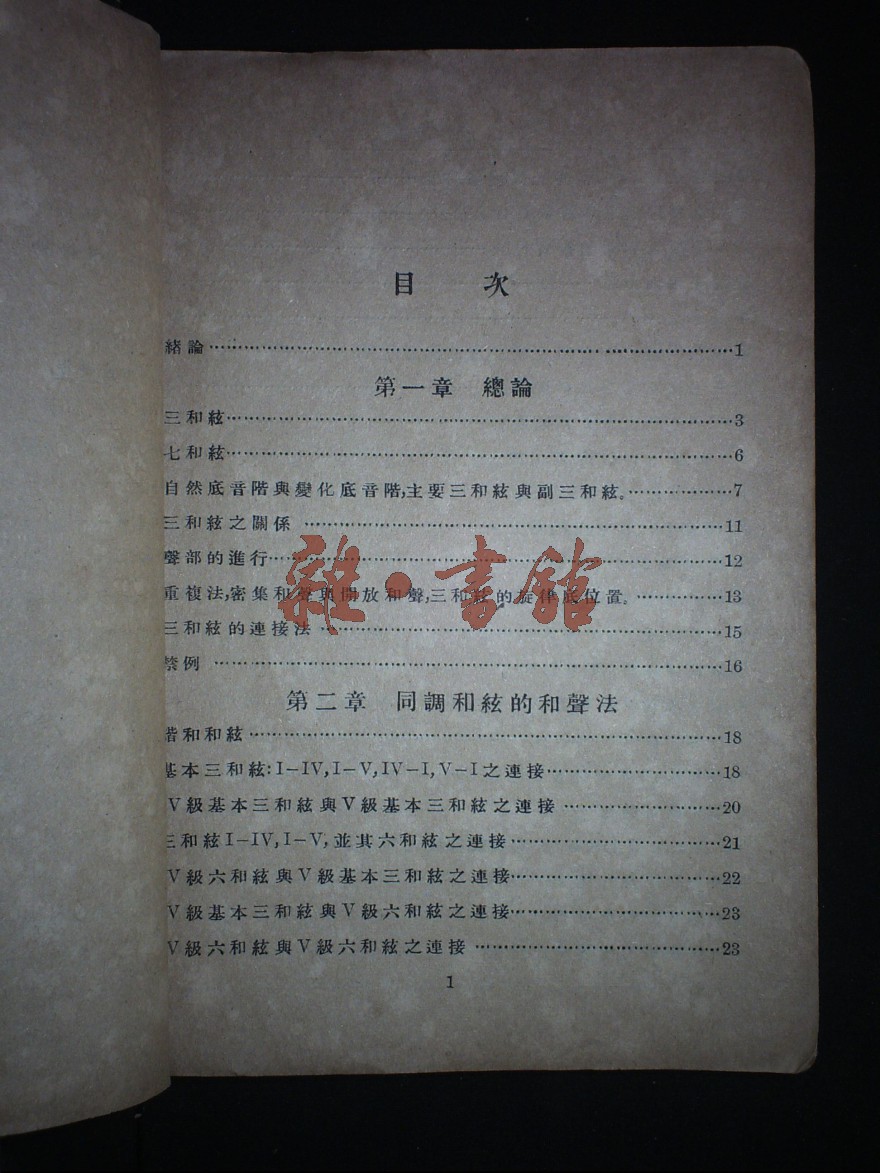 目 次
緒論……1
第一章 總論
三和絃……3
七和絃……6
自然底音階與變化底音階,主要三和絃與副三和絃。……7
三和絃之關係……11
聲部的進行……12
重複法,密集和聲與開放和聲,三和絃的旋律底位置。……13
三和絃的連接法……15
禁例……16
第二章 同調和絃的和聲法
諧和和絃……18
基本三和絃:I—IV,I—V,IV—I,V—I之連接……18
V級基本三和絃與V級基本三和絃之連接……20
三和絃I—IV,I—V,並其六和絃之連接……21
V級六和絃與V級基本三和絃之連接……22
V級基本三和絃與V級六和絃之連接……23
V級六和絃與V級六和絃之連接……23
1
雜·書館